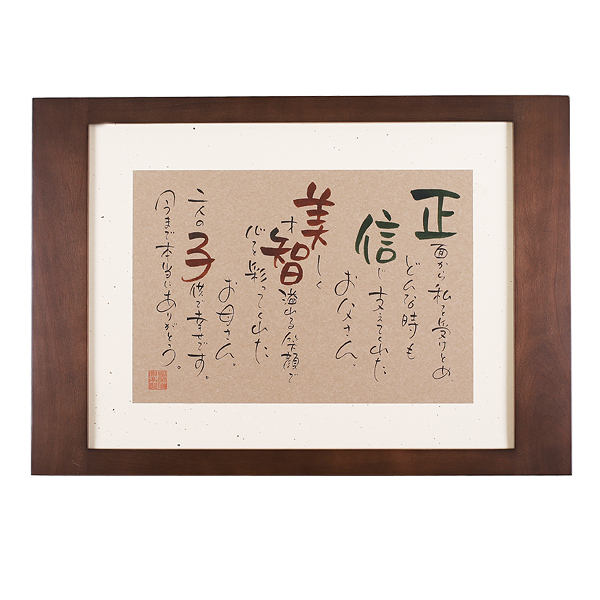 正面から私を受けとめ
どんな時も
信じ支えてくれた
お父さん。
美しく
才智溢れる笑顔で
心を彩ってくれた
お母さん。
二人の子供で幸せです。
今まで本当にありがとう。